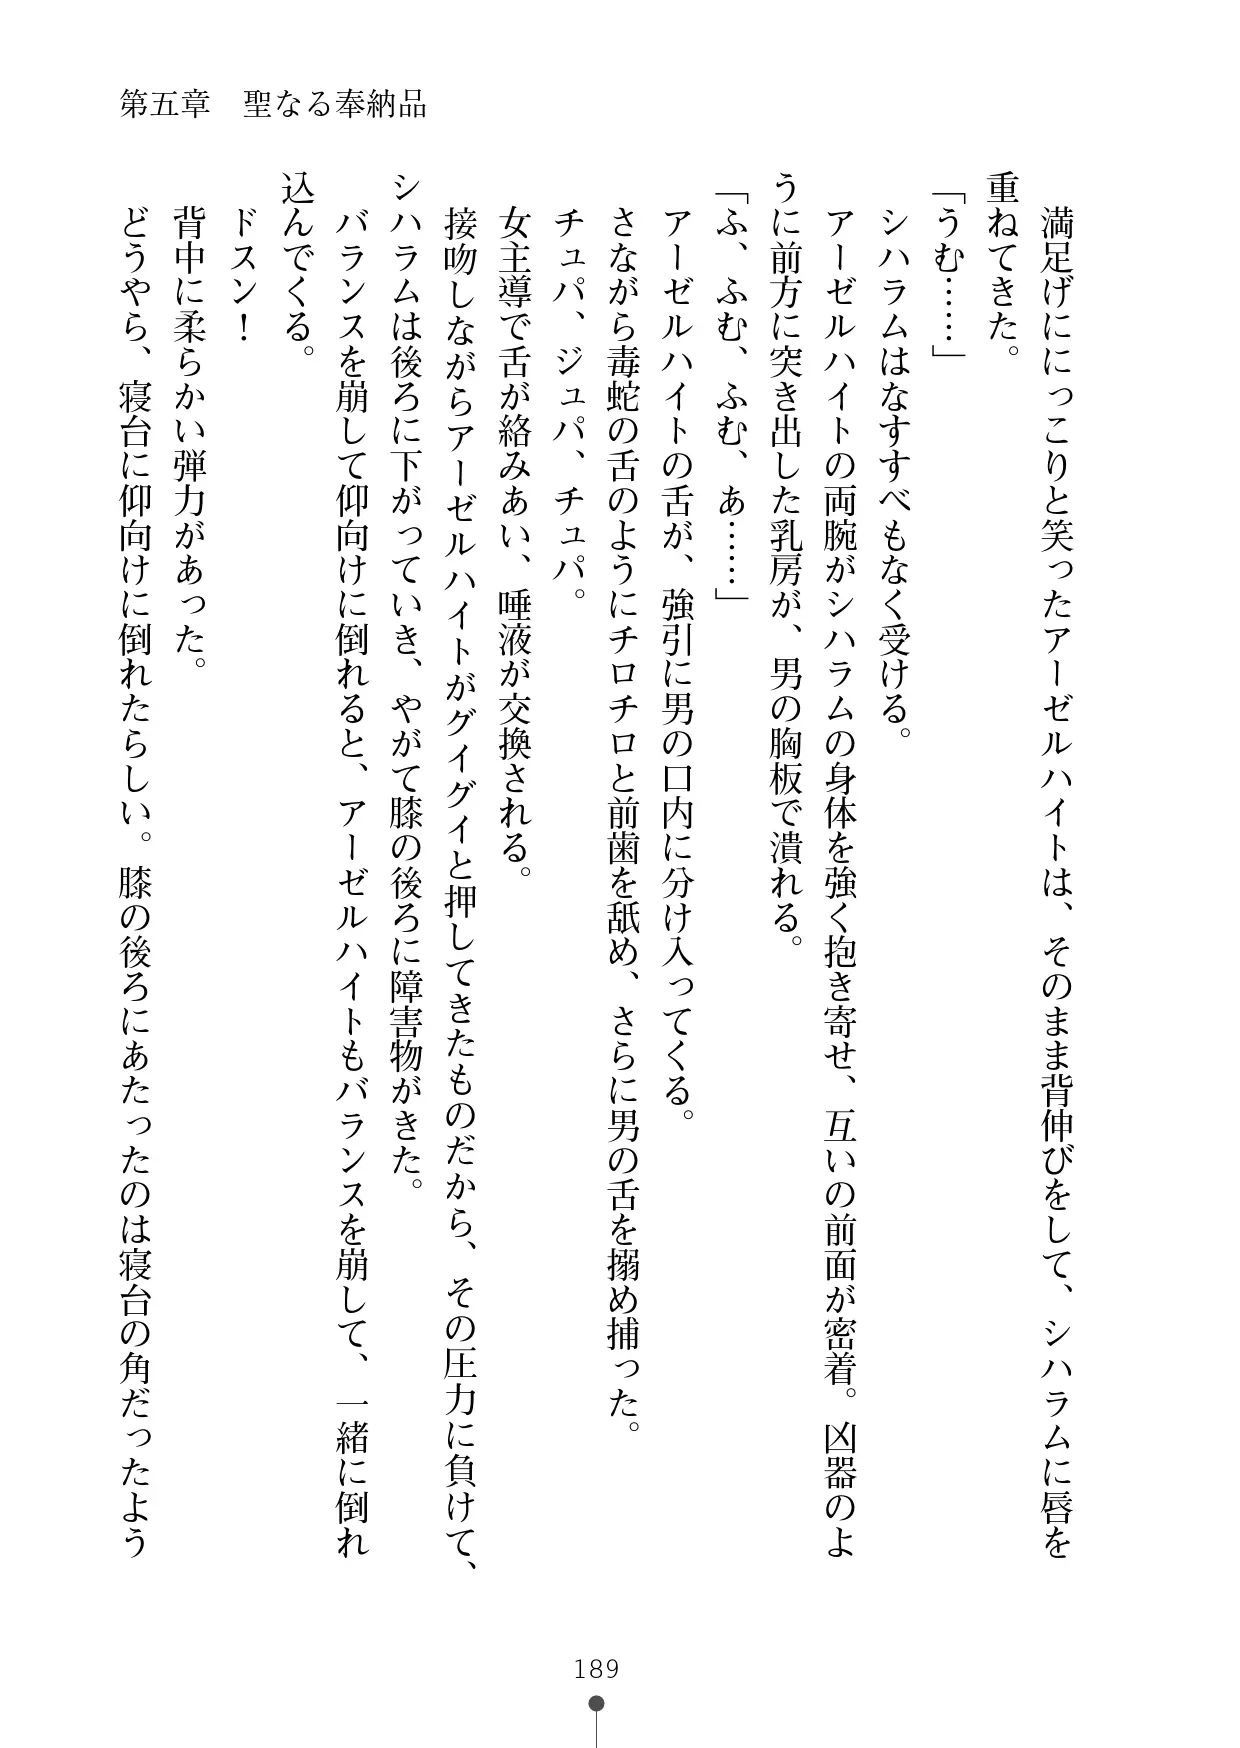 第五章　聖なる奉納品
　満足げににっこりと笑ったアーゼルハイトは、そのまま背伸びをして、シハラムに唇を
重ねてきた。
「うむ……」
　シハラムはなすすべもなく受ける。
　アーゼルハイトの両腕がシハラムの身体を強く抱き寄せ、互いの前面が密着。凶器のよ
うに前方に突き出した乳房が、男の胸板で潰れる。
「ふ、ふむ、ふむ、あ……」
　アーゼルハイトの舌が、強引に男の口内に分け入ってくる。
　さながら毒蛇の舌のようにチロチロと前歯を舐め、さらに男の舌を搦め捕った。
　チュパ、ジュパ、チュパ。
　女主導で舌が絡みあい、唾液が交換される。
　接吻しながらアーゼルハイトがグイグイと押してきたものだから、その圧力に負けて、
シハラムは後ろに下がっていき、やがて膝の後ろに障害物がきた。
　バランスを崩して仰向けに倒れると、アーゼルハイトもバランスを崩して、一緒に倒れ
込んでくる。
　ドスン！
　背中に柔らかい弾力があった。
　どうやら、寝台に仰向けに倒れたらしい。膝の後ろにあたったのは寝台の角だったよう
189